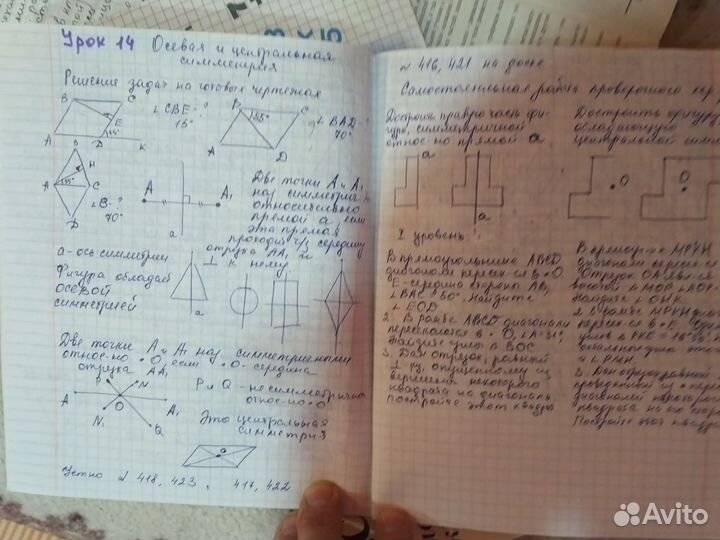 Урок 14 Осевая и центральная
симметрия
Решение задач на готовых чертежах
B C
∠ CBE-?
15°
E
D K
B C
55°
∠ BAD-?
70°
A D
B
H
A C
D
∠B-?
70°
A A₁
a
Две точки A и A₁
наз симметрич
относительно
прямой a, если
эта прямая
проходит ч/з середину
отрезка AA₁ и
⊥ к нему.
a - ось симметрии
Фигура обладает
осевой
симметрией
Две точки A и A₁ наз симметричными
относ-но • O, если • O - середина
отрезка AA₁
P N
A O A₁
N₁ Q
P и Q - не симметричн
относ-но • O
Это центральная
симметрия
Устно № 418, 423, 417, 422
№ 416, 421 на доске
Самостоятельная работа проверочного хар
Достроить правую часть фи-
гуры, симметричной
относ-но прямой a
a a
Достроить фигуру
обладающую
центральной симм
O O
I уровень.
В прямоугольнике ABCD
диагонали пересек-ся в • O
E - середина стороны AB,
∠ BAC = 50°. Найдите
∠ EOD.
2. В ромбе ABCD диагонали
пересекаются в • O, ∠A = 31°,
Найдите углы △ BOC
3. Дан отрезок, равный
⊥-ру, опущенному из
вершины некоторого
квадрата на диагональ
постройте этот квадрат
В прямоуг-ке MPKH
диагонали пересек-ся
Отрезок OA явл-ся
высотой
Найдите ∠ OHK
2. В ромбе MPKH диаго
пересек-ся в • E
угол
3. Дан отрезок, равный
проведенной из • пере
диагоналей некоторого
квадрата на его сторону
Постройте этот квадрат
Avito